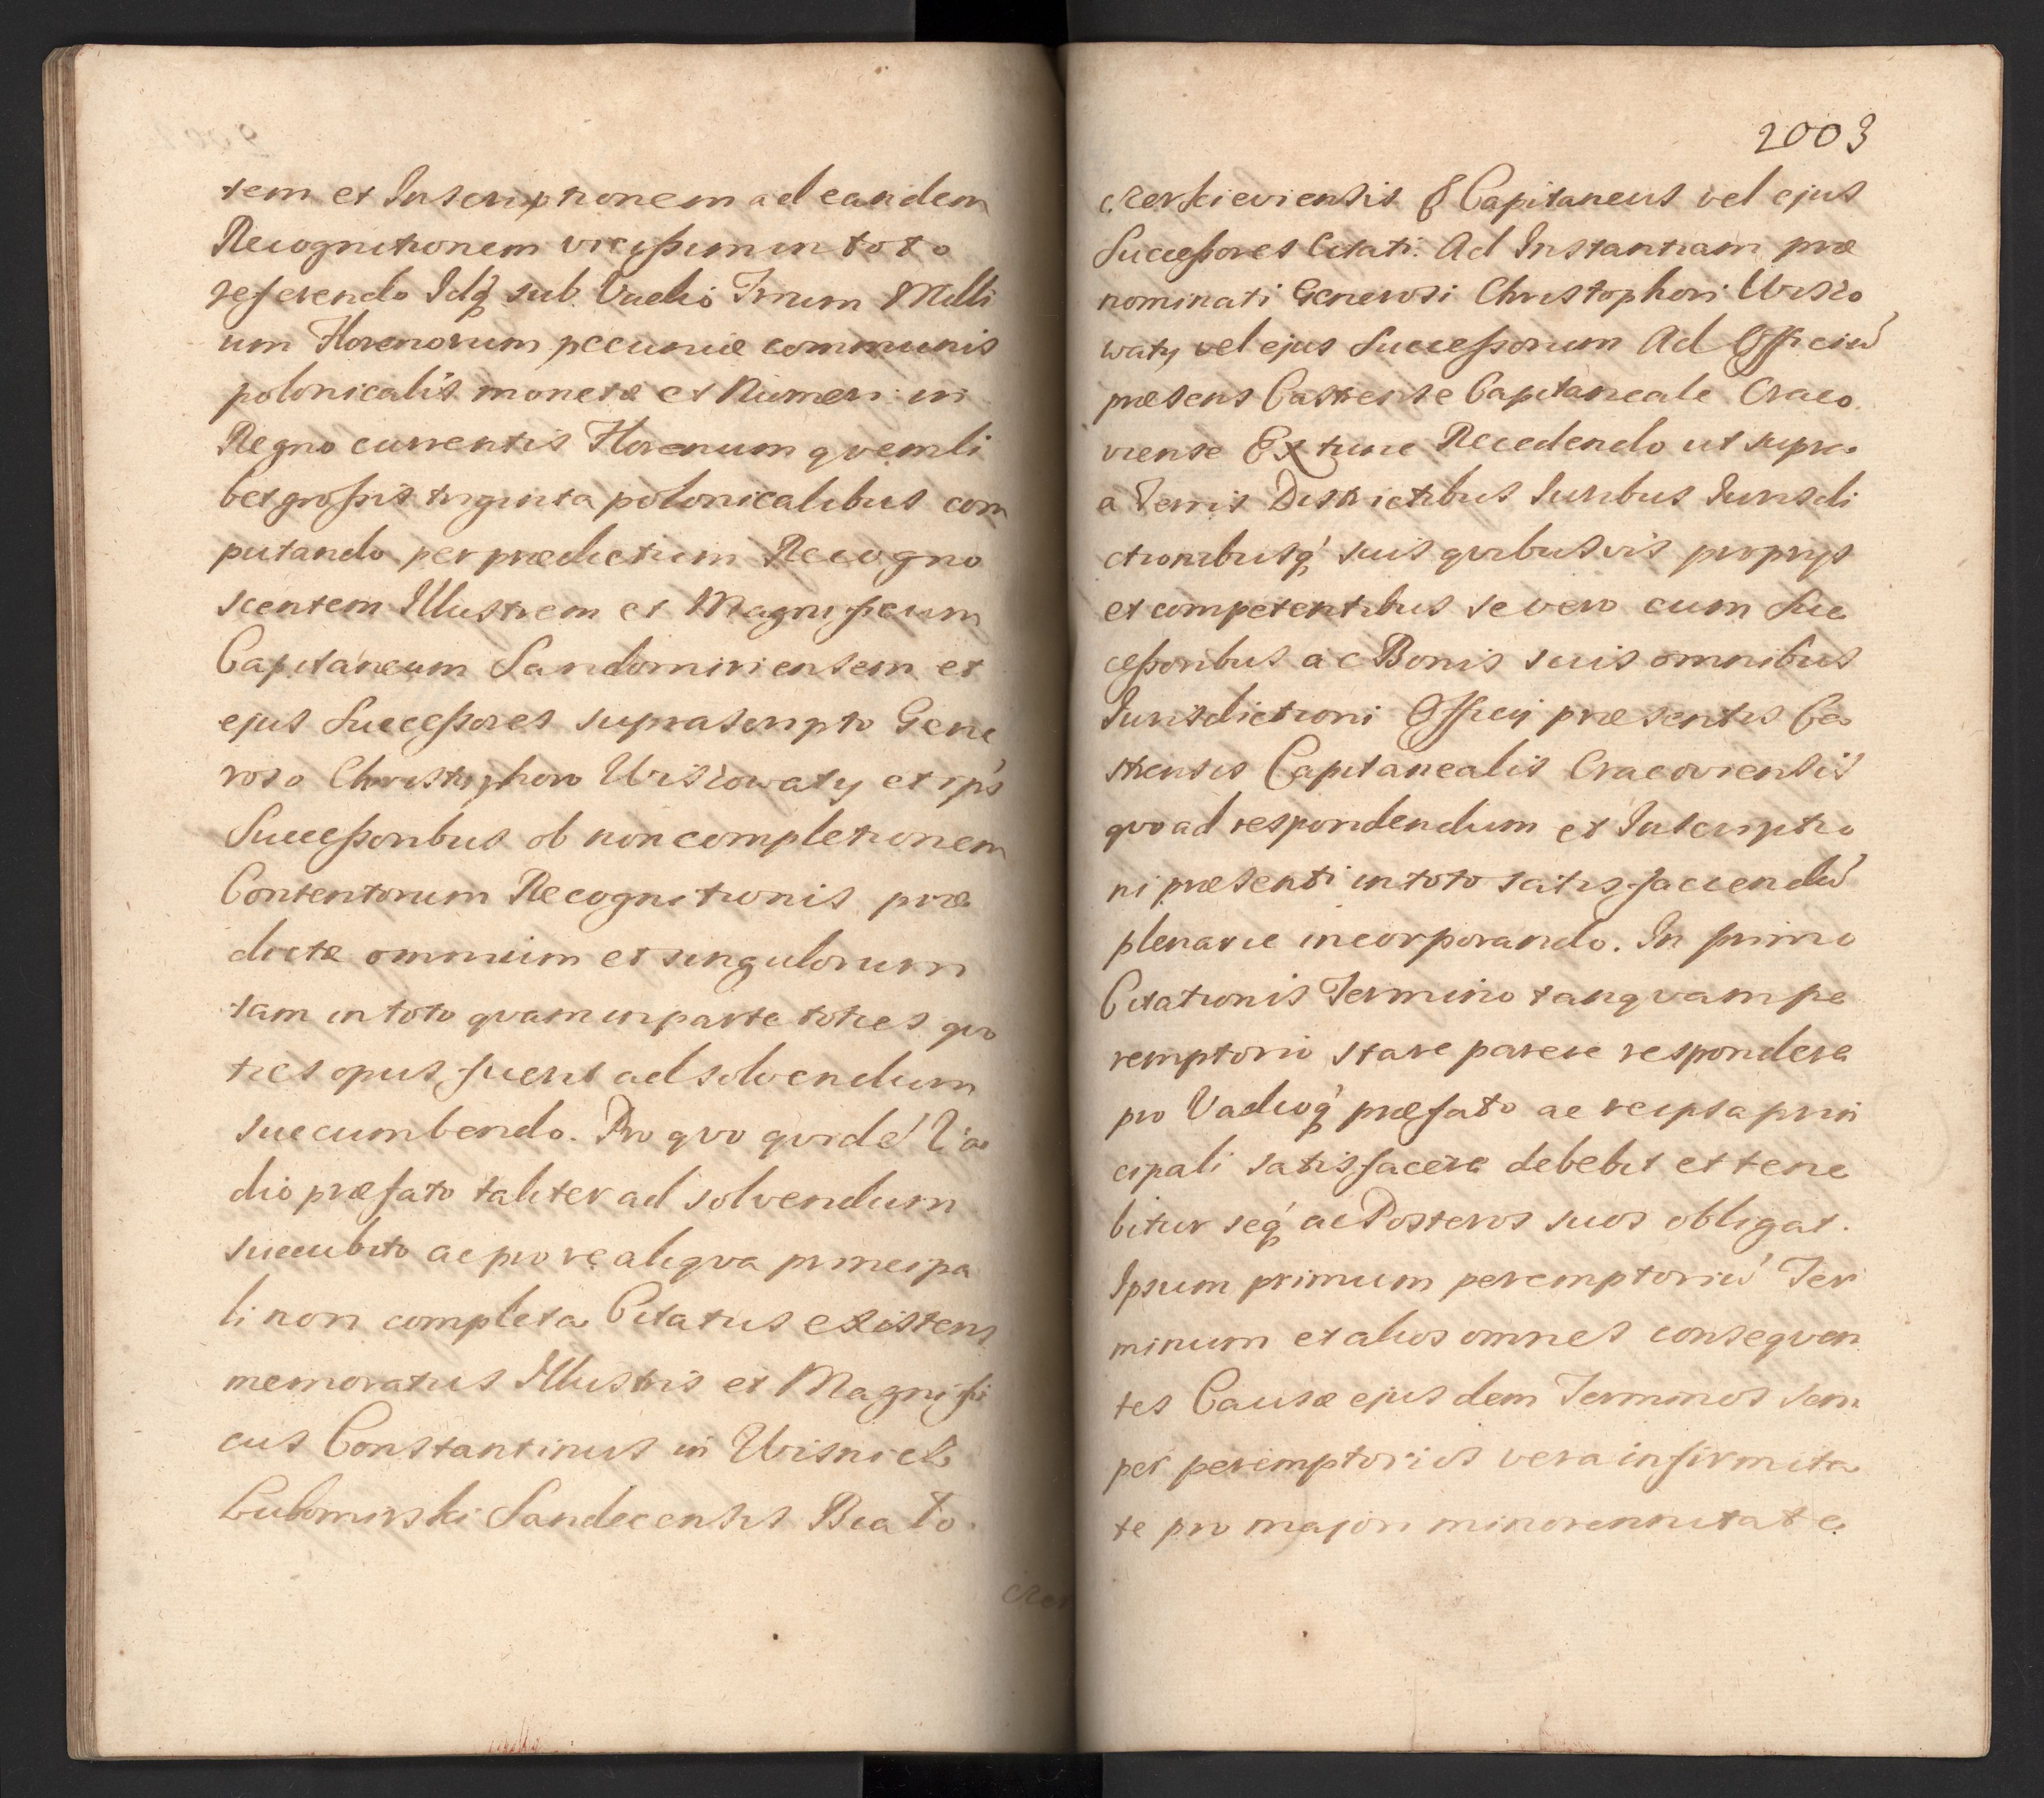 tem et Inscriptionem ad eandem
Recognitionem vicissim in toto
referendo Idq́ sub Vadio Trium Milli
um Florenorum pecuniæ communis
polonicalis monetæ et Numeri in
Regno currentis Florenum qvemli
bet grossis triginta polonicalibus com
putando per prædictum Recogno
scentem Illustrem et Magnificum
Capitaneum Sandomiriensem et
ejus Successores suprascripto Gene
roso Christophoro Wiszowaty et ips
Successoribus ob non completionem
Contentorum Recognitionis præ
dictæ omnium et singulorum
tam in toto qvam in parte toties qvo
ties opus fuerit ad solvendum
succumbendo. Pro qvo qvidé Va
dio præfato taliter ad solvendum
succubito ac pro re aliqva principa
li non completa Citatus existens
memoratus Illustris et Magnifi
cus Constantinus in Wisnicz
Lubomirski Sandecensis Biało
czer
2003
czerkieviensis & Capitaneus vel ejus
Successores Citati. Ad Instantiam præ
nominati Generosi Christophori Wiszo
waty vel ejus Successorum Ad Officiú
præsens Castrense Capitaneale Craco
viense Ex tunc Recedendo ut supra
a Terris Districtibus Iuribus Iurisdi
ctionibusq́ suis qvibusvis proprys
et competentibus se vero cum Suc
cessoribus ac Bonis suis omnibus
Iurisdictioni Officij præsentis Ca
strensis Capitanealis Cracoviensis
qvo ad respondendum et Inscriptio
ni præsenti in toto satisfaciendú
plenarie incorporando. In primo
Citationis Termino tanqvam pe
remptorio stare parere respondere
pro Vadioq́ præfato ac re ipsa prin
cipali satisfacere debebit et tene
bitur seq́ ac Posteros suos obligat.
Ipsum primum peremptoriú Ter
minum et alios omnes conseqven
tes Causæ ejusdem Terminos sem
per peremptorios vera infirmita
te pro majori minorennitate